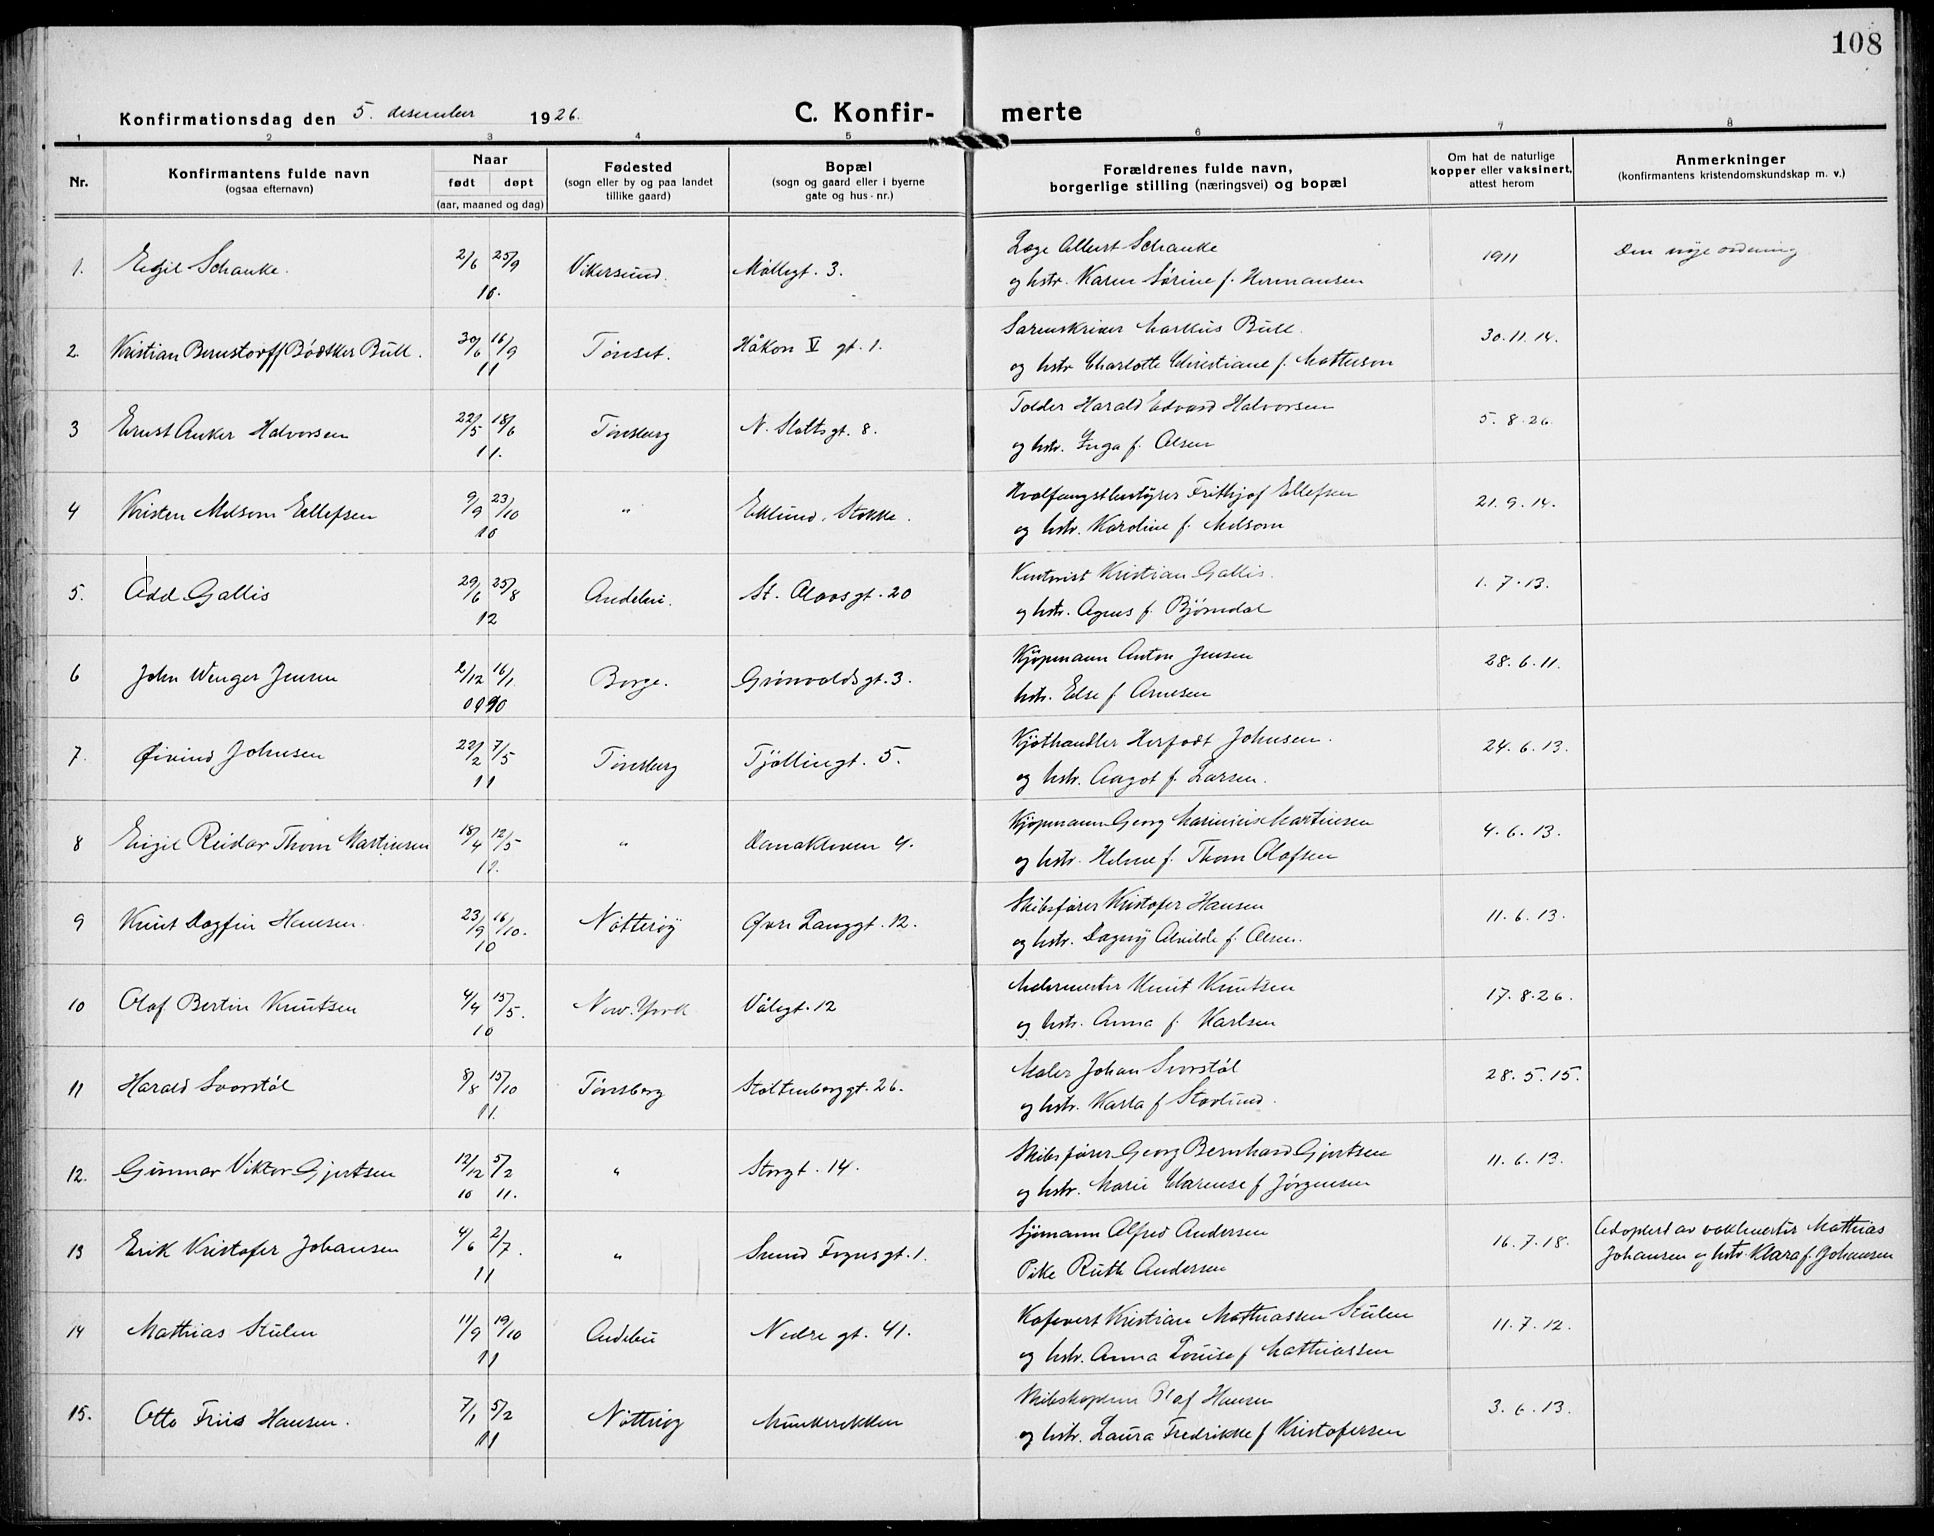 108
Konfirmationsdag den 5. desember 1926.
C. Konfir- merte
1 2 3 4 5 6 7 8
Nr.
Konfirmantens fulde navn
(ogsaa efternavn)
Naar
født døpt
(aar, maaned og dag)
Fødested
(sogn eller by og paa landet
tillike gaard)
Bopæl
(sogn og gaard eller i byerne
gate og hus-nr.)
Forældrenes fulde navn,
borgerlige stilling (næringsvei) og bopæl
Om hat de naturlige
kopper eller vaksinert,
attest herom
Anmerkninger
(konfirmantens kristendomskundskap m. v.)
Læge Albert Schanke
1. Eigil Schanke. 2/6 25/9 Vikersund. Møllegt. 3. 1911 Den nye ordning
10. og hstr. Karen Sørine f. Hermansen
Sorenskriver Markus Bull.
2. Kristian Bernstorff Bødtker Bull. 30/6 16/9 Tønset. Håkon V gt. 1. 30.11.14.
11 og hstr Charlotte Christiane f. Matheson
Tolder Harald Edvard Halvorsen
3 Ernst Anker Halvorsen 22/5 18/6 Tønsberg N. Slottsgt. 8. 5.8.26.
11. og hstr. Inga f. Olsen
Hvalfangstbestyrer Frithjof Ellefsen
4 Kristen Melsom Ellefsen 9/9 23/10 " Eklund, Stokke. 21.9.14.
10 og hstr. Karoline f. Melsom
Kontorist Kristian Gallis.
5. Odd Gallis 29/6 25/8 Andebu. St. Olavsgt. 20 1.7.13.
12 og hstr. Agnes f. Bjørndal
Kjøpmann Anton Jensen
6 John Wenger Jensen 2/12 16/1 Borge. Grønvoldsgt. 3. 28.6.11.
09 10 hstr. Else f Arnesen
Kjøthandler Herfodt Johnsen.
7. Øivind Johnsen 22/2 7/5 Tønsberg Tjøllingt. 5. 24.6.13.
11 og hstr. Aagot f. Larsen.
Kjøpmann Georg Marinius Martinsen
8 Eigil Reidar Thom Martinsen 18/4 12/5 " Danakleven 4. 4.6.13.
og hstr. Helene f. Thom Olafsen
Skibsfører Kristofer Hansen
9 Knut Dagfin Hansen. 23/9 16/10. Nøtterøy Øvre Langgt. 12. 11.6.13.
10 og hstr. Dagny Alvilde f. Olsen.
Knut Knutsen
10 Olaf Bertin Knutsen 4/4 15/5. New. York Vålegt. 12 17.8.26.
10 og hstr. Anna f. Karlsen
Maler Johan Svorstøl
11 Harald Svorstøl 8/8 15/10 Tønsberg Stoltenberggt. 26. 28.5.15.
11. og hstr. Karla f Stavlund.
Skibsfører Georg Bernhard Gjertsen
12. Gunnar Viktor Gjertsen 12/12 5/2 " Storgt. 14. 11.6.13.
10 11. og hstr. Marie Clarense f Jørgensen
Sjømann Alfred Andersen Adoptert av vaktmester Mathias
13 Erik Kristofer Johansen 4/6 2/7. " Svend Foynsgt. 1. 16.7.18. Johansen og hstr. Klara f. Johansen
11 Pike Ruth Andersen
Kristian Mathiassen Stulen
14 Mathias Stulen 11/9 19/10 Andebu Nedre gt. 41. 11.7.12.
11 og hstr. Anna Louise f Mathiassen
Skibskaptein Olaf Hansen
15. Otto Friis Hansen. 7/1 5/2 Nøtterøy Munkerekken 3.6.13.
11 og hstr. Laura Fredrikke f Kristofersen